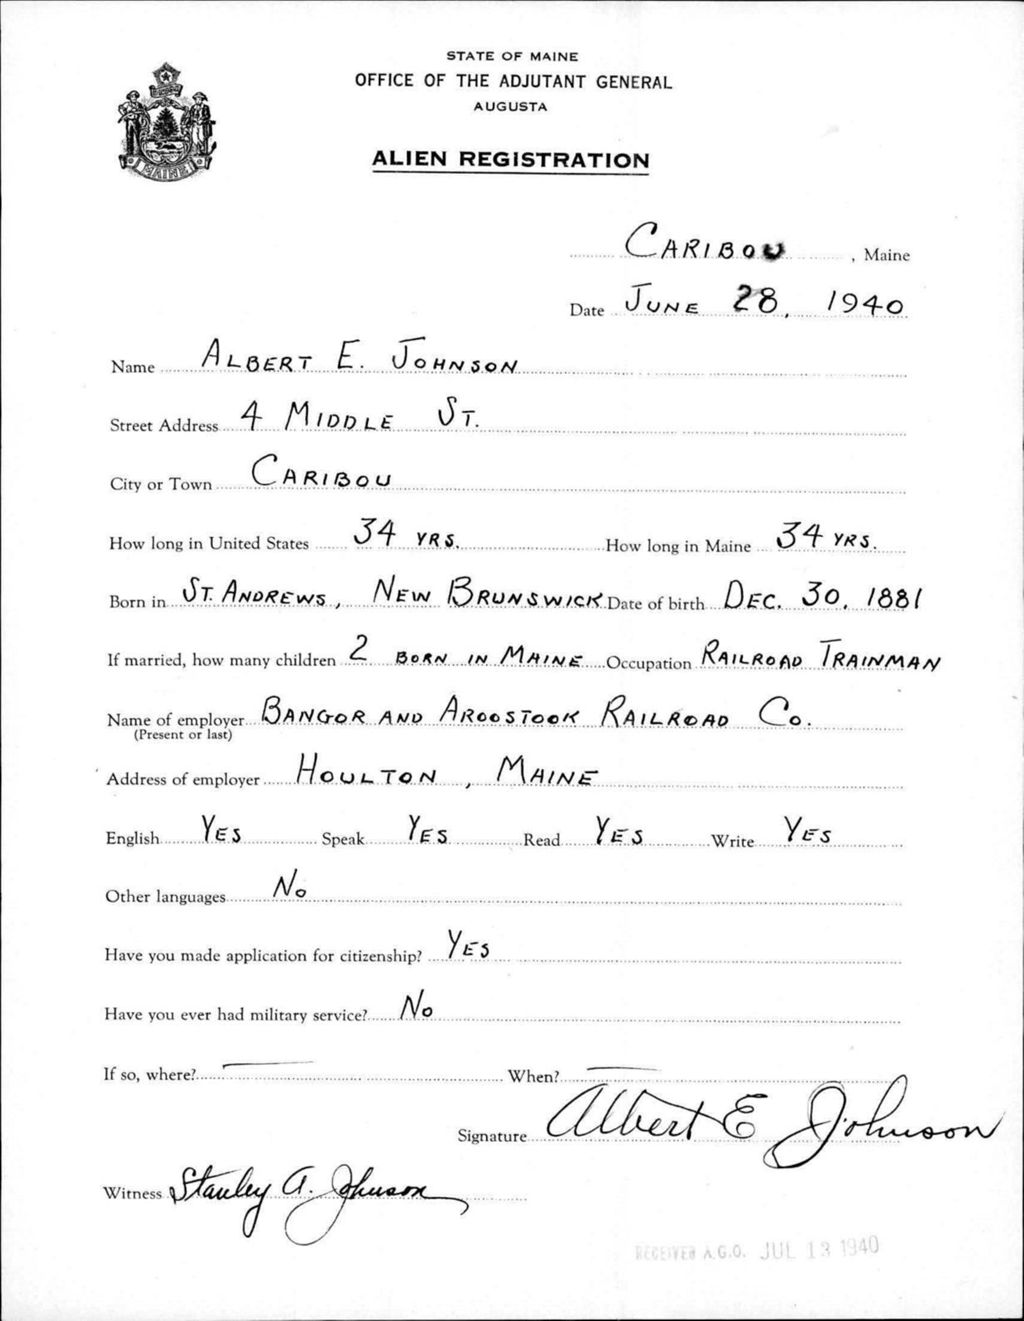 STATE OF MAINE
OFFICE OF THE ADJUTANT GENERAL
AUGUSTA
ALIEN REGISTRATION
MAINE
CARIBOU, Maine
Date JUNE 28, 1940
Name ALBERT E. JOHNSON
Street Address 4 MIDDLE ST.
City or Town CARIBOU
How long in United States 34 YRS. How long in Maine 34 YRS.
Born in ST. ANDREWS, NEW BRUNSWICK Date of birth DEC. 30, 1881
If married, how many children 2 BORN IN MAINE Occupation RAILROAD TRAINMAN
Name of employer BANGOR AND AROOSTOOK RAILROAD CO.
(Present or last)
Address of employer HOULTON, MAINE
English YES Speak YES Read YES Write YES
Other languages NO
Have you made application for citizenship? YES
Have you ever had military service? NO
If so, where? — When? —
Signature Albert E Johnson
Witness Stanley A. Johnson
RECEIVED A.G.O. JUL 13 1940